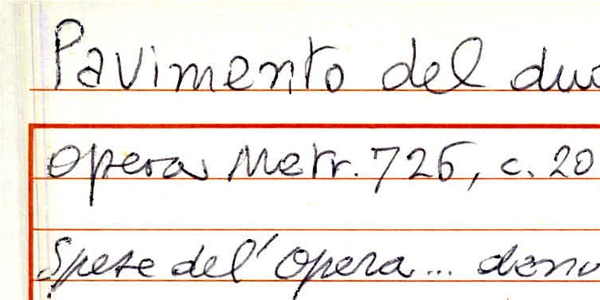 Pavimento del duo
Opera Metr. 726, c. 20
Spese dell'Opera... dena